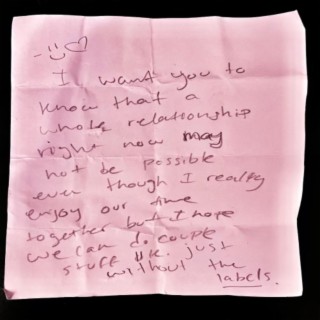 I want you to
know that a
whole relationship
right now may
not be possible
even though I really
enjoy our time
together but I hope
we can do couple
stuff just
without the
labels.